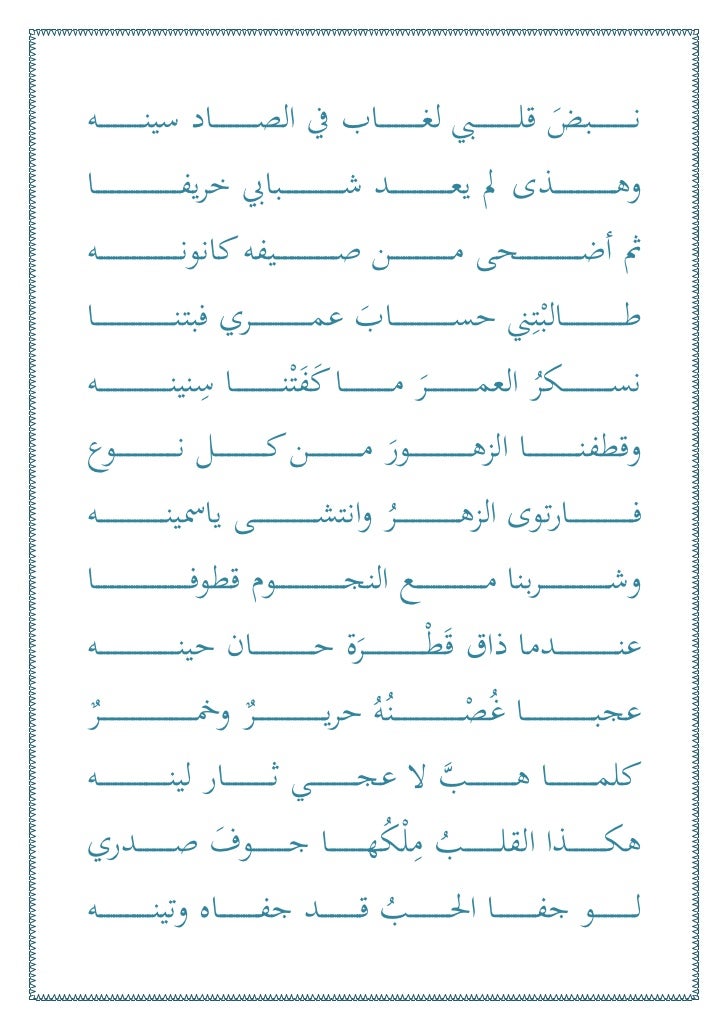 نبضَ قلبي لغاب في الصاد سينه
وهذى لم يعد شبابي خريفا
ثم أضحى من صيفه كانونه
طالبْتِني حسابَ عمري فبتنا
نسكرُ العمرَ ما كَفَتْنا سِنينه
وقطفنا الزهورَ من كل نوع
فارتوى الزهرُ وانتشى ياسمينه
وشربنا مع النجوم قطوفا
عندما ذاق قَطْرَة حان حينه
عجبا غُصْنُهُ حريرٌ وخمرٌ
كلما هبَّ لا عجي ثار لينه
هكذا القلبُ مِلْكُها جوفَ صدري
لو جفا الحبُ قد جفاه وتينه